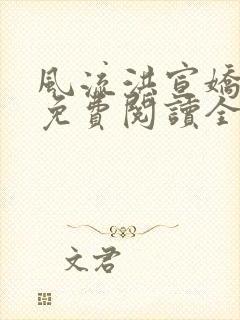 風流洪宣嬌
免費閱讀全
文君